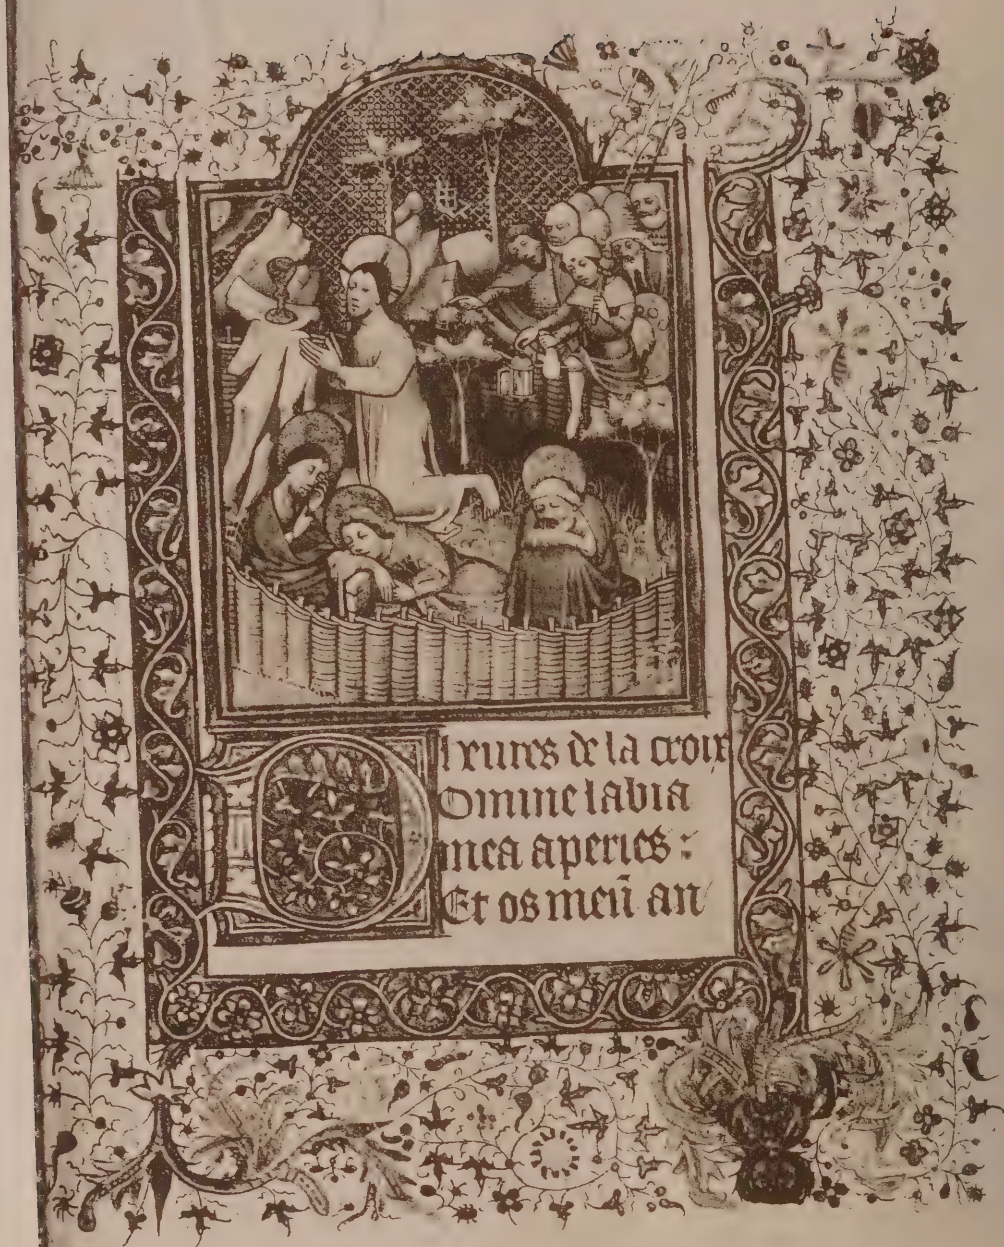 heures de la croix
Omine labia
mea aperies :
Et os meū an